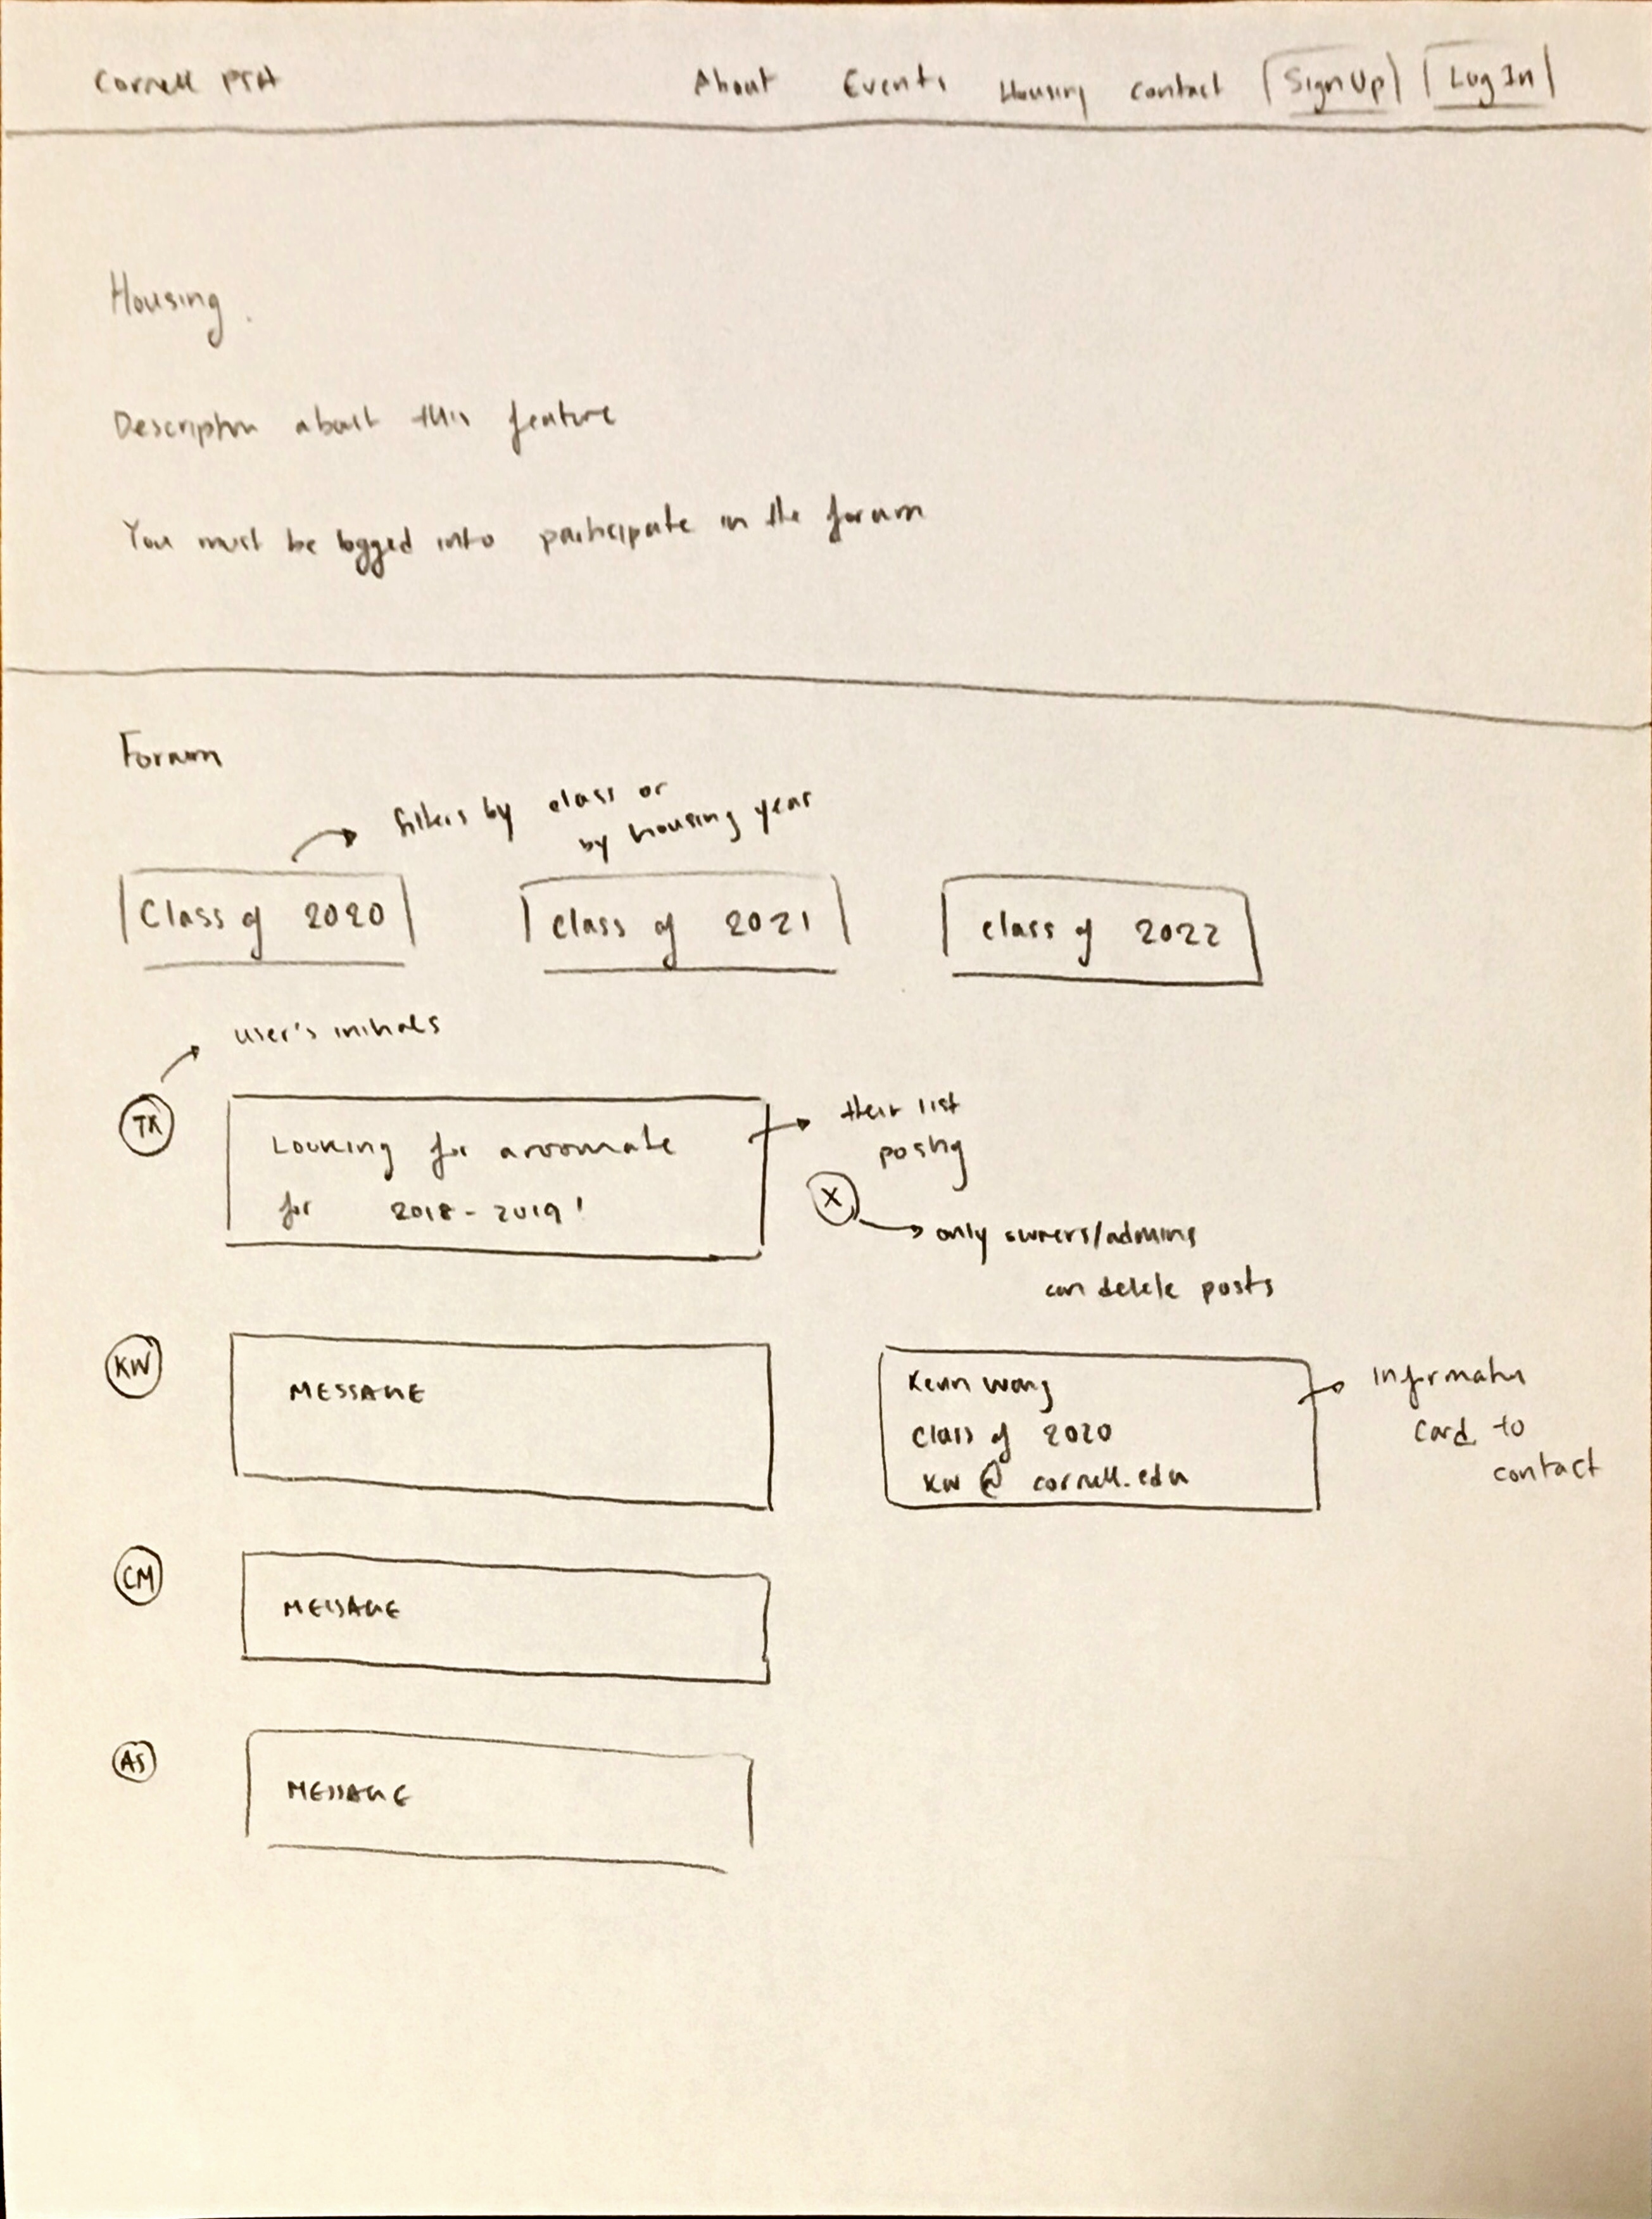 Cornell PSA About Events Housing Contact Sign Up Log In
Housing
Description about this feature
You must be logged into participate in the forum
Forum
filters by class or
by housing year
Class of 2020 class of 2021 class of 2022
user's initials
TK
Looking for a roomate
for 2018-2019!
their list
posting
X
only owners/admins
can delete posts
KW
MESSAGE
Kevin Wong
class of 2020
kw@cornell.edu
information
card to
contact
CM
MESSAGE
AS
MESSAGE